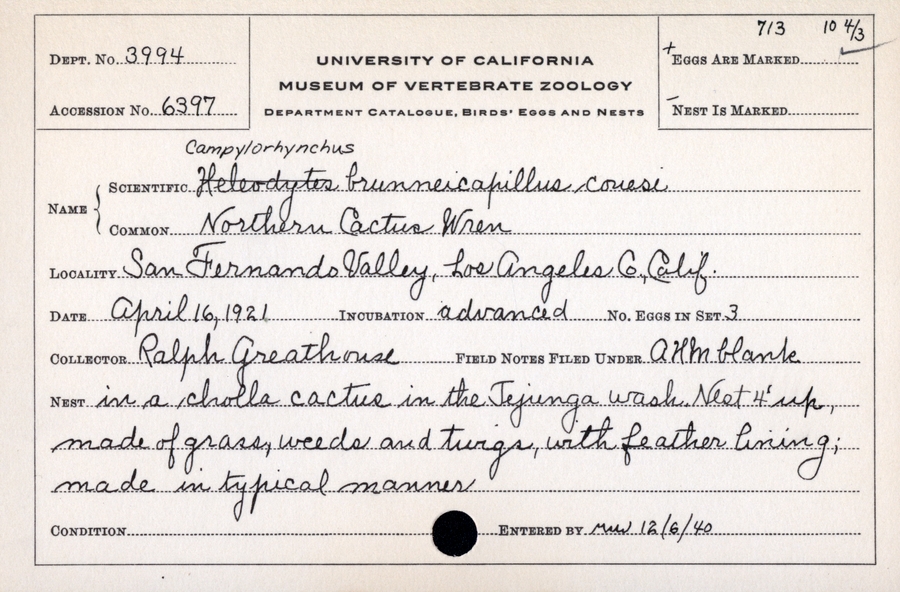 713 10 4/3
Dept. No. 3994
UNIVERSITY OF CALIFORNIA
MUSEUM OF VERTEBRATE ZOOLOGY
Department Catalogue, Birds' Eggs and Nests
+ Eggs Are Marked ✓
Accession No. 6397
- Nest Is Marked
Campylorhynchus
Name { Scientific Heleodytes brunneicapillus couesi
Common Northern Cactus Wren
Locality San Fernando Valley, Los Angeles Co., Calif.
Date April 16, 1921 Incubation advanced No. Eggs in Set 3
Collector Ralph Greathouse Field Notes Filed Under AHM blank
Nest in a cholla cactus in the Tejunga wash. Nest 4' up,
made of grass, weeds and twigs, with feather lining;
made in typical manner
Condition Entered by mw 12/6/40